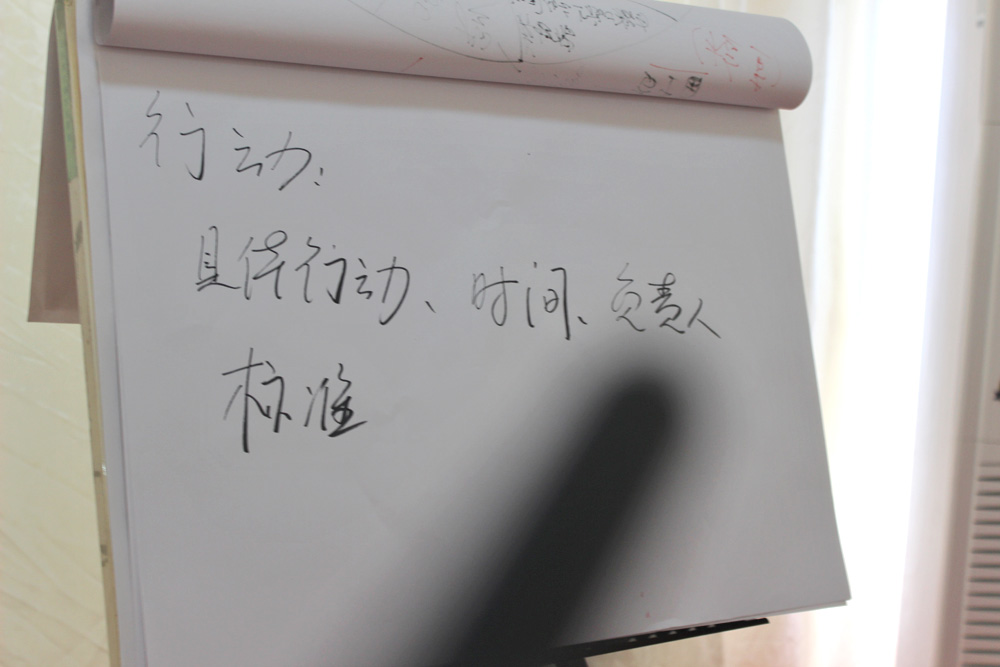 行动：
具体行动、时间、负责人
标准